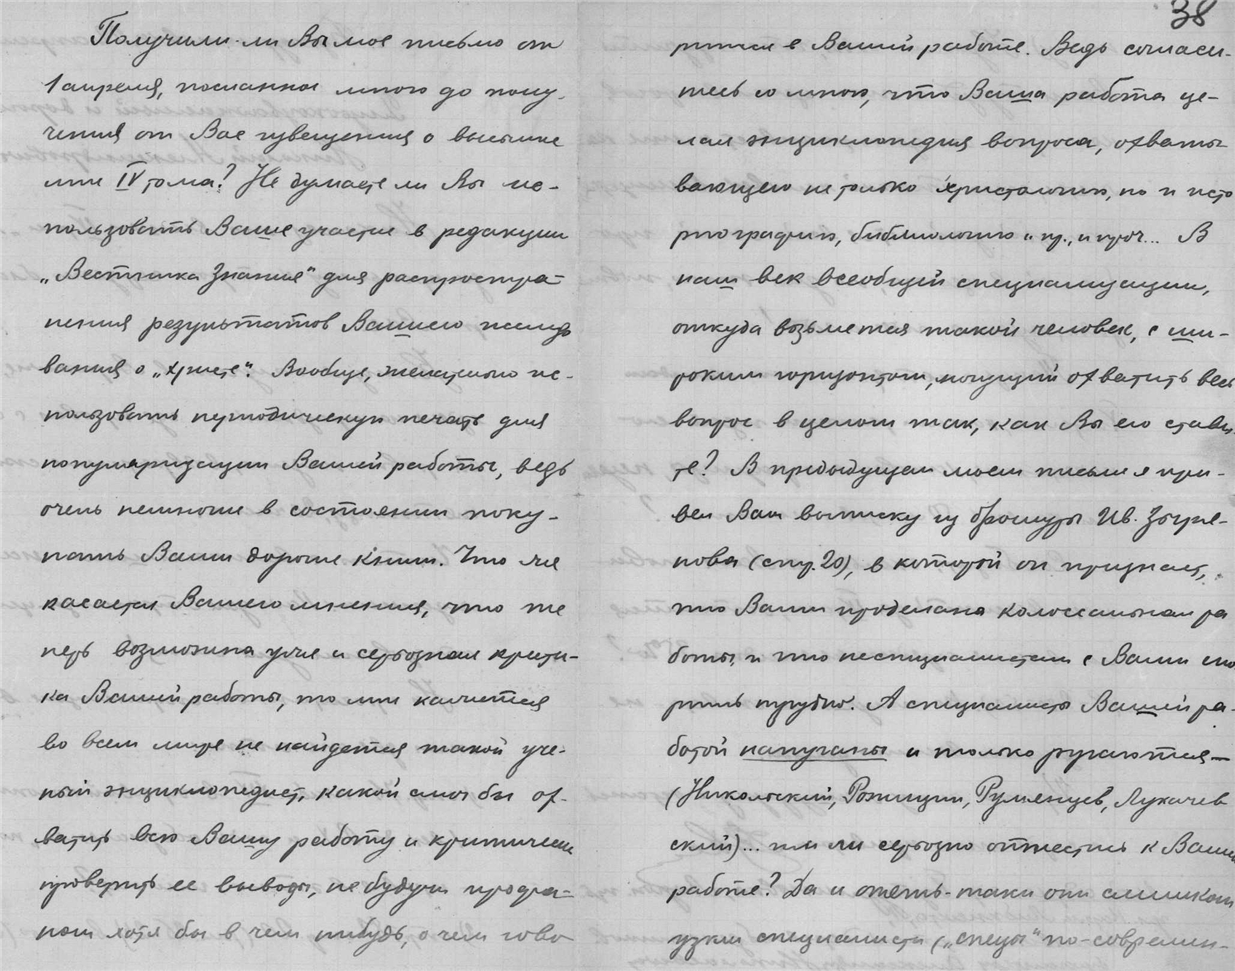 Получили-ли Вы мое письмо от
1 апреля, посланное мною до полу-
чения от Вас извещения о высылке
мне IV тома? Не думаете ли Вы ис-
пользовать Ваше участие в редакции
„Вестника Знания" для распростра-
нения результатов Вашего исследо
вания о „Христе". Вообще, желательно ис-
пользовать периодическую печать для
популяризации Вашей работы, ведь
очень немногие в состоянии поку-
пать Ваши дорогие книги. Что же
касается Вашего мнения, что те
перь возможна уже и серьозная крити-
ка Вашей работы, то мне кажется
во всем мире не найдется такой уче-
ный энциклопедист, какой смог бы ох-
ватить всю Вашу работу и критически
проверить ее выводы, не будучи профа-
ном хотя бы в чем нибудь, о чем гово
38
рится в Вашей работе. Ведь согласи-
тесь со мною, что Ваша работа це-
лая энциклопедия вопроса, охваты
вающего не только христологию, но и исто
риографию, библиологию и пр., и проч... В
наш век всеобщей специализации,
откуда возьмется такой человек, с ши-
роким горизонтом, могущий охватить весь
вопрос в целом так, как Вы его стави
те? В предыдущем моем письме я при-
вел Вам выписку из брошуры Ив.
(стр. 20), в которой он признает,
что Вами проделана колоссальная ра
бота, и что неспециалистам с Вами спо
рить трудно. А специалисты Вашей ра-
ботой напуганы и только ругаются —
(Никольский, Румянцев, Лукачев
ский)... или ли серьозно отнестись к Вашей
работе? Да и опять-таки они слишком
узкие специалисты („спецы" по-современ-